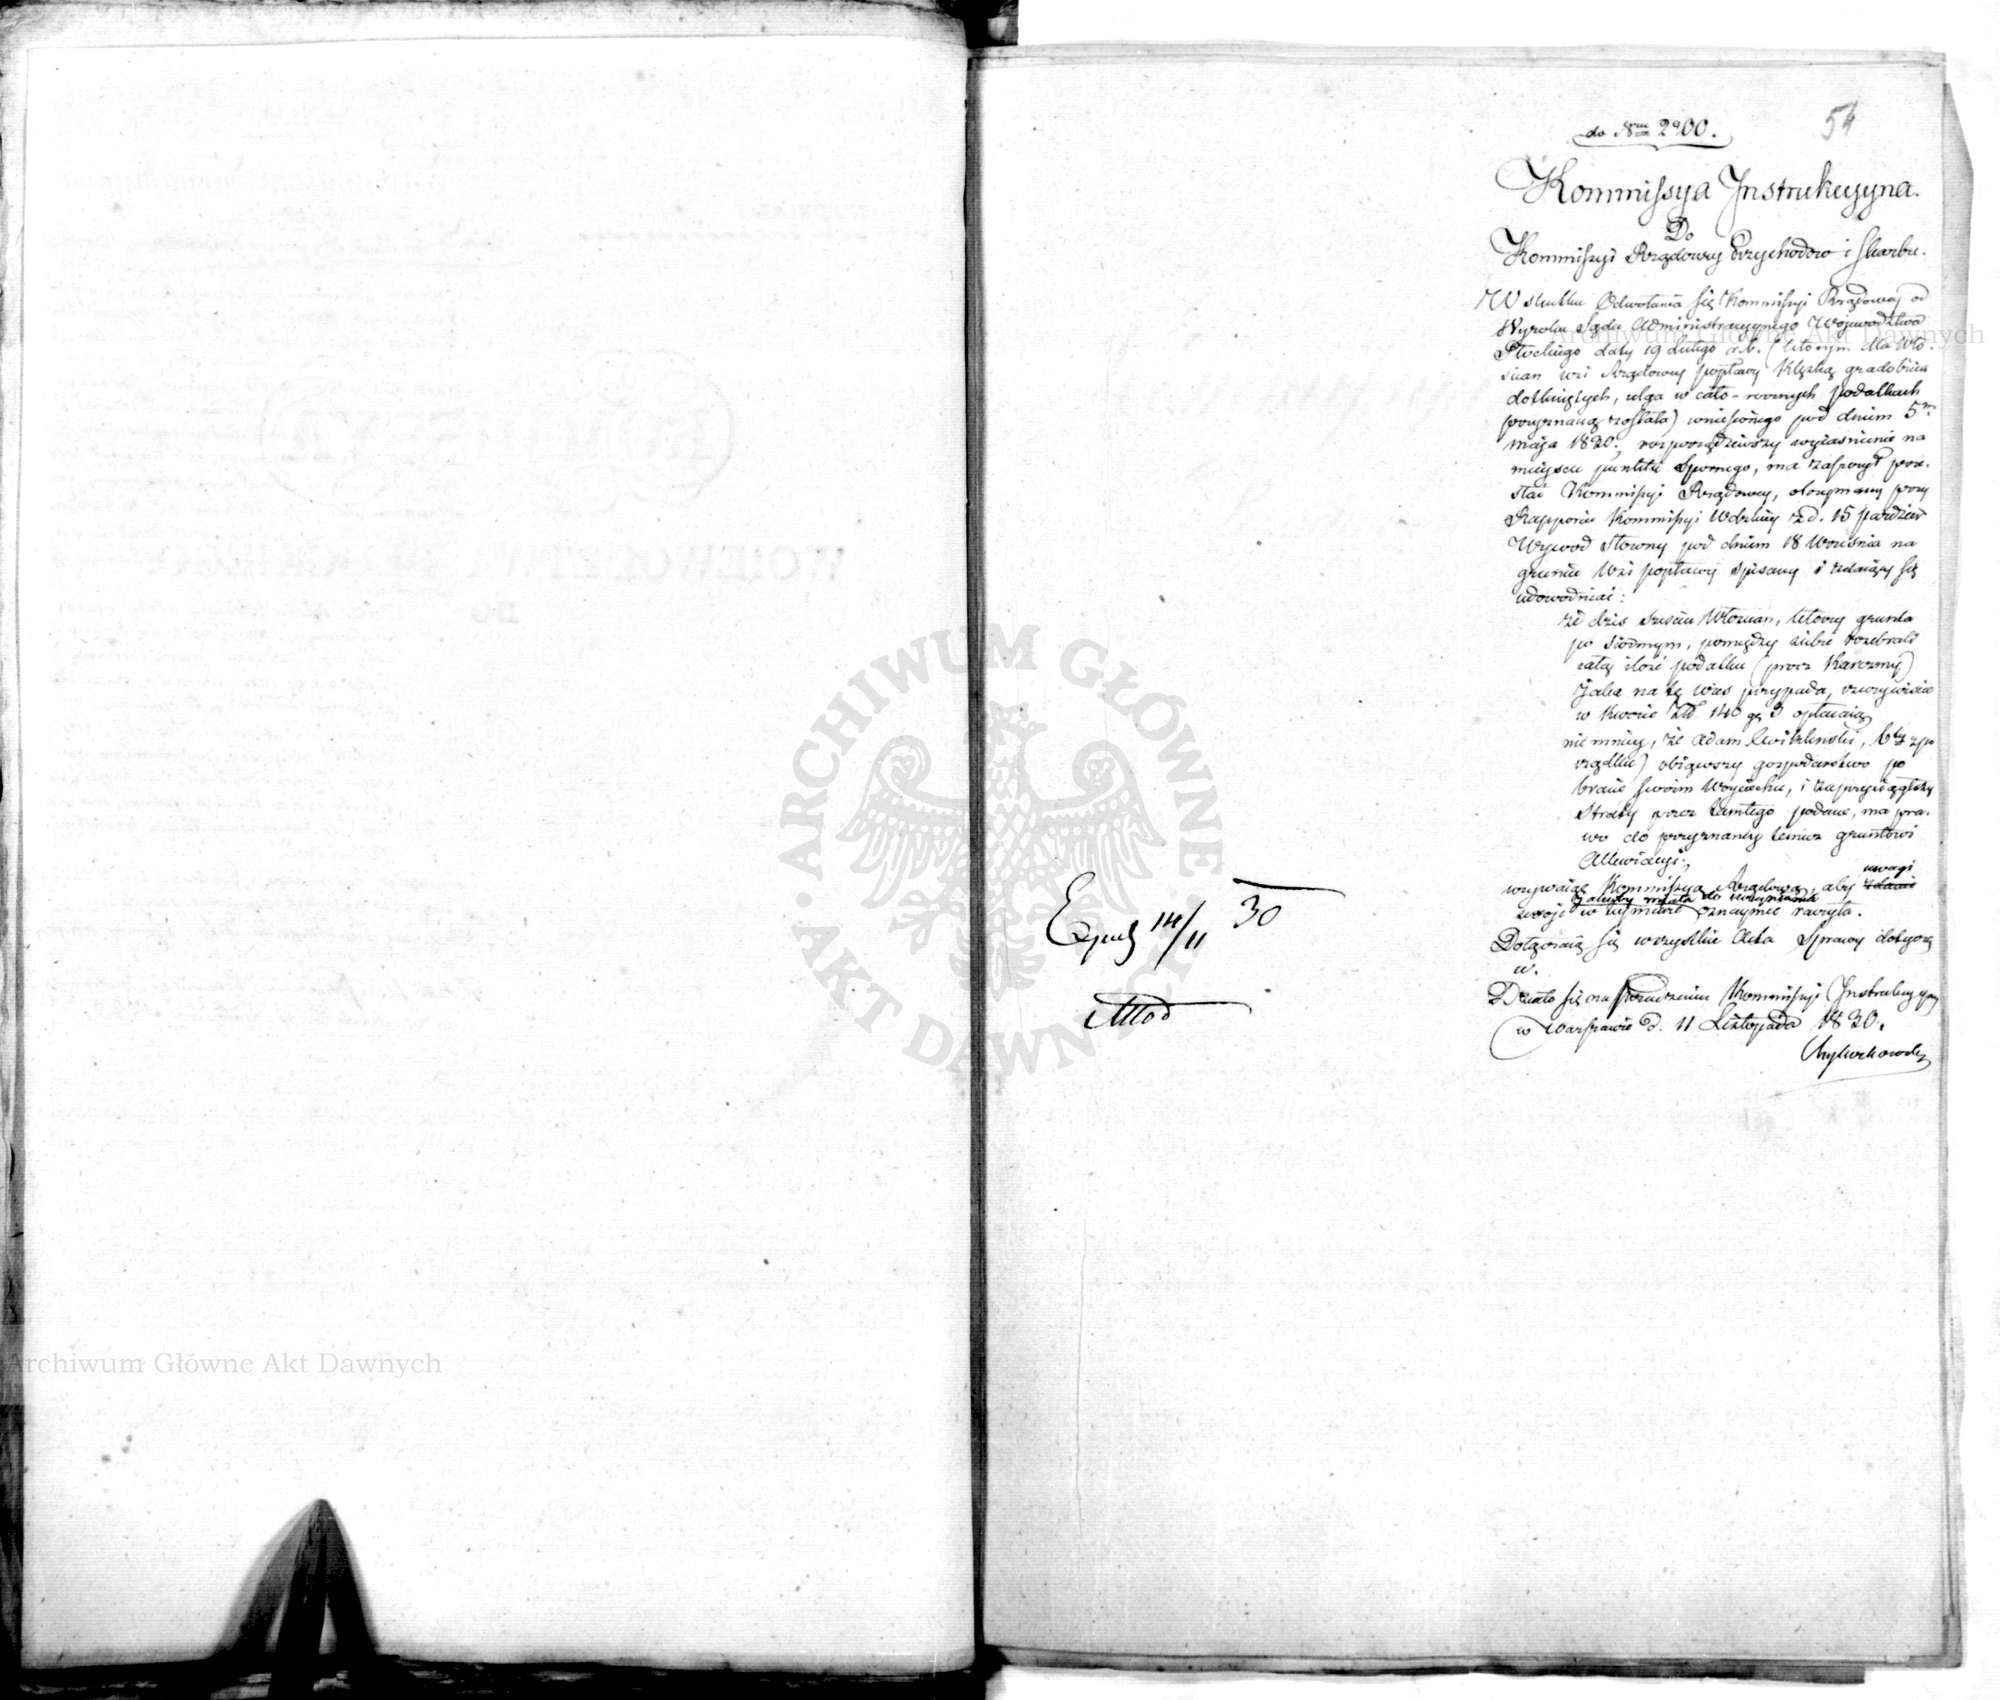 54
do Nrm 2900.
Kommissya Instrukcyyna.
Do
Kommissyi Rządowey Przychodow i Skarbu.
W skutku Odwołania się Kommissyi Rządowey od
Wyroku Sądu Administracyynego Województwa
Płockiego daty 19 lutego r.b. (którym dla Wło-
ścian wsi Rządowey Popławy klęską gradobicia
dotkniętych, ulga w cało-rocznych podatkach
przyznaną została) wniesionego pod dniem 5m
maja 1820; rozporządziwszy wyiaśnienie na
mieyscu punktu spornego, ma zaszczyt prze-
słać Kommissyi Rządowey, otrzymany przy
Rapporcie Kommissyi Wdzkiey z d. 15 paździer
Wywod Słowny pod dniem 18 Września na
gruncie Wsi Popławy spisany i zdaiący się
udowodniać:
że dziś sześciu Włościan, którzy grunta
po siodmym, pomiędzy siebie rozebrali
całą ilość podatku (procz Karczmy)
jaka na tę wieś przypada, rzeczywiście
w kwocie Złł 140 gr 3 opłacaią
nie mniey, że Adam
obiąwszy gospodarstwo po
bracie swoim Woyciechu, i zaprzysiągłszy
straty przez tamtego podane, ma pra-
wo do przyznaney temuż gruntowi
Allewiacyi;
uwagi
wzywaiąc Kommissyą Rządową, aby zdanie
jakieby miała do
swoje w tey mierze oznaymić raczyła.
Dołączaią się wszystkie Akta Sprawy dotyczą
ce.
Działo się na Posiedzeniu Kommissyi Instrukcyyney
w Warszawie d. 11 Listopada 1820.
Exped 14/11 30
Archiwum Główne Akt Dawnych
Archiwum Główne Akt Dawnych
ARCHIWUM GŁÓWNE
AKT DAWNYCH